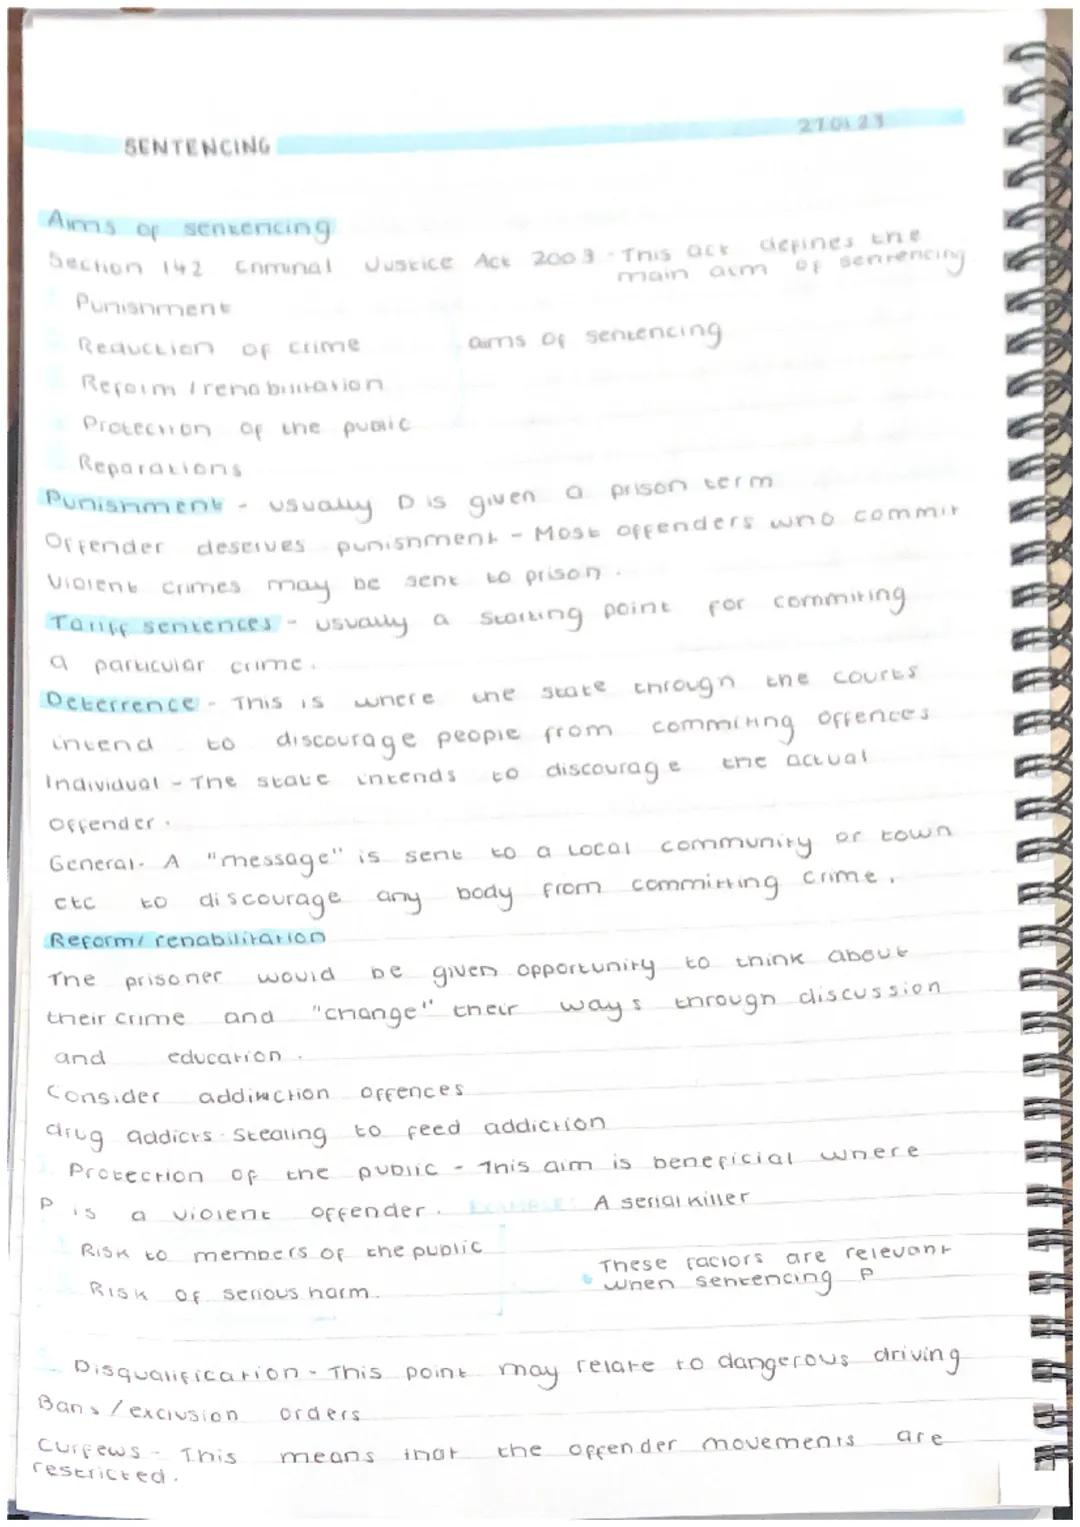 27.01.23
SENTENCING
Aims of sentencing
Section 142 Criminal Justice Act 2003 - This act defines the
main aim of sentencing
Punishment
Reduction of crime
aims of sentencing
Reform / rehabilitation
Protection of the public
Reparations
Punishment - usually D is given a prison term
Offender deserves punishment - Most offenders who commit
violent crimes may be sent to prison.
Tariff sentences - usually a starting point for commiting
a particular crime.
Deterrence - This is where the state through the courts
intend to discourage people from commiting offences
Individual - The state intends to discourage the actual
offender.
General - A "message" is sent to a local community or town
etc to discourage any body from committing crime.
Reform/ rehabilitation
The prisoner would be given opportunity to think about
their crime and "change" their ways through discussion
and education.
Consider addiction offences
drug addicts - stealing to feed addiction
Protection of the public - This aim is beneficial where
P is a violent offender. EXAMPLE: A serial killer
Risk to members of the public
Risk of serious harm.
These factors are relevant
when sentencing P
Disqualification - This point may relate to dangerous driving
Bans / exclusion orders
Curfews - This means that the offender movements are
restricted.